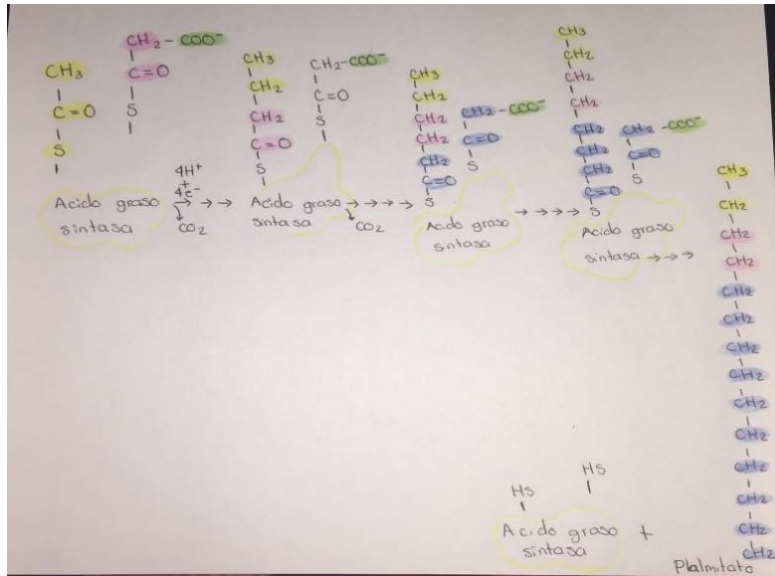 CH2 - COO-
C=O
S
CH3
C=O
S
Acido graso
sintasa
4H+
+
4e-
→ → →
CO2
CH2-COO-
C=O
S
CH3
CH2
CH2
C=O
S
Acido graso
sintasa
→ → → →
CO2
CH2 - COO-
C=O
S
CH3
CH2
CH2
CH2
CH2
C=O
S
Acido graso
sintasa
→ → → →
CH2 - COO-
C=O
S
CH3
CH2
CH2
CH2
CH2
CH2
CH2
C=O
S
Acido graso
sintasa → → →
CH3
CH2
CH2
CH2
CH2
CH2
CH2
CH2
CH2
CH2
CH2
CH2
CH2
CH2
HS
HS
Acido graso
sintasa
+
Plalmitato